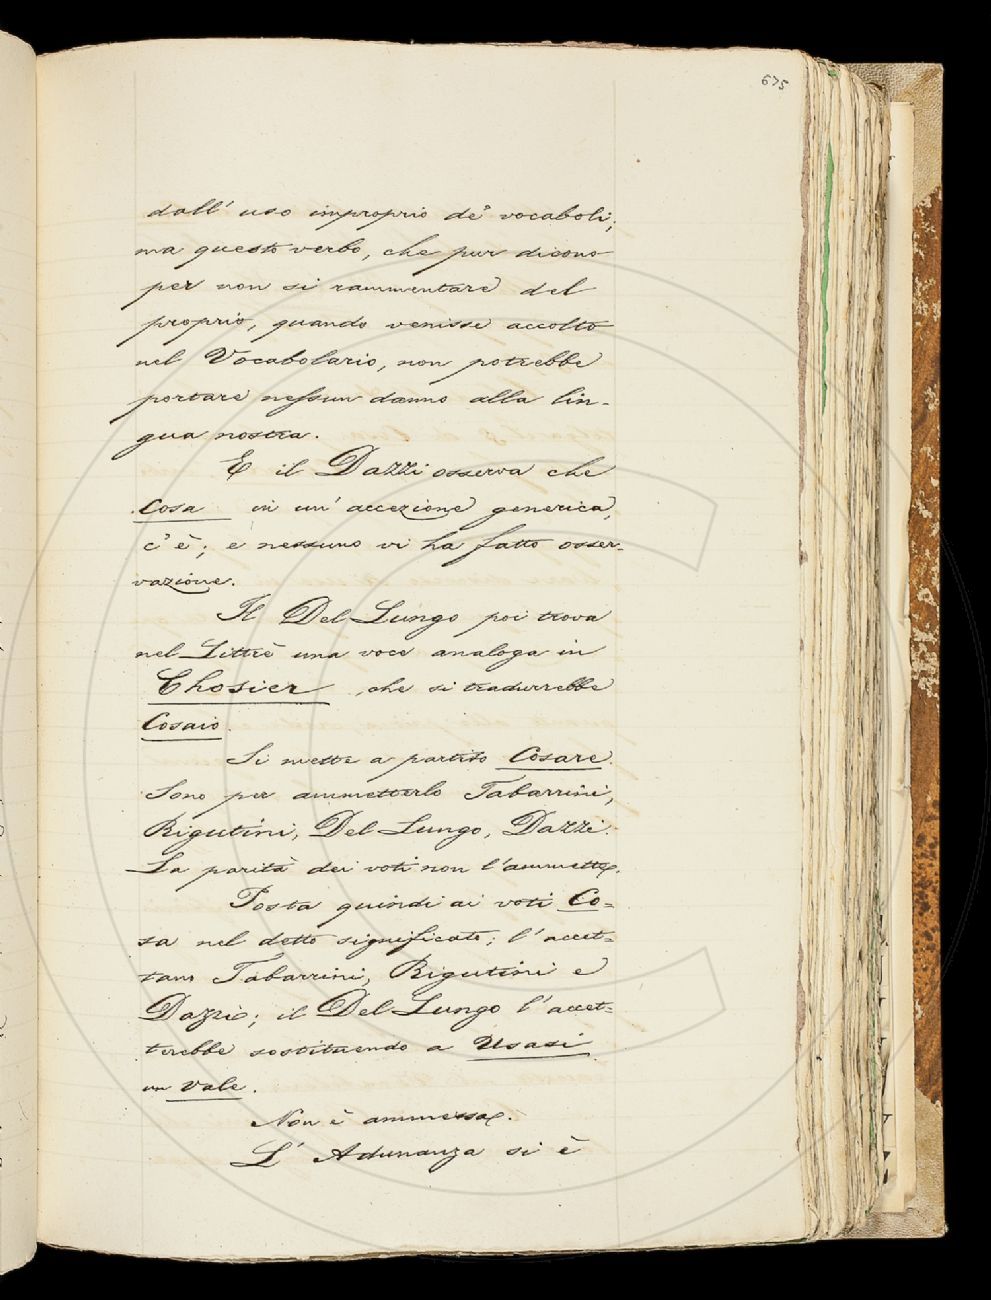 675
dall' uso improprio de' vocaboli;
ma questo verbo, che pur dicono
per non si rammentare del
proprio, quando venisse accolto
nel Vocabolario, non potrebbe
portare nessun danno alla lin-
gua nostra.
E il Dazzi osserva che
Cosa in un' accezione generica,
c'è; e nessuno vi ha fatto osser-
vazione.
Il Del Lungo poi trova
nel Littré una voce analoga in
Chosier, che si tradurrebbe
Cosaio.
Si mette a partito Cosare.
Sono per ammetterlo Tabarrini,
Rigutini, Del Lungo, Dazzi.
La parità dei voti non l'ammette.
Posta quindi ai voti Co=
sa nel detto significato; l'accet=
tano Tabarrini, Rigutini e
Dazzi; il Del Lungo l'accet=
terebbe sostituendo a Usasi
un vale.
Non è ammessa.
L' Adunanza si è